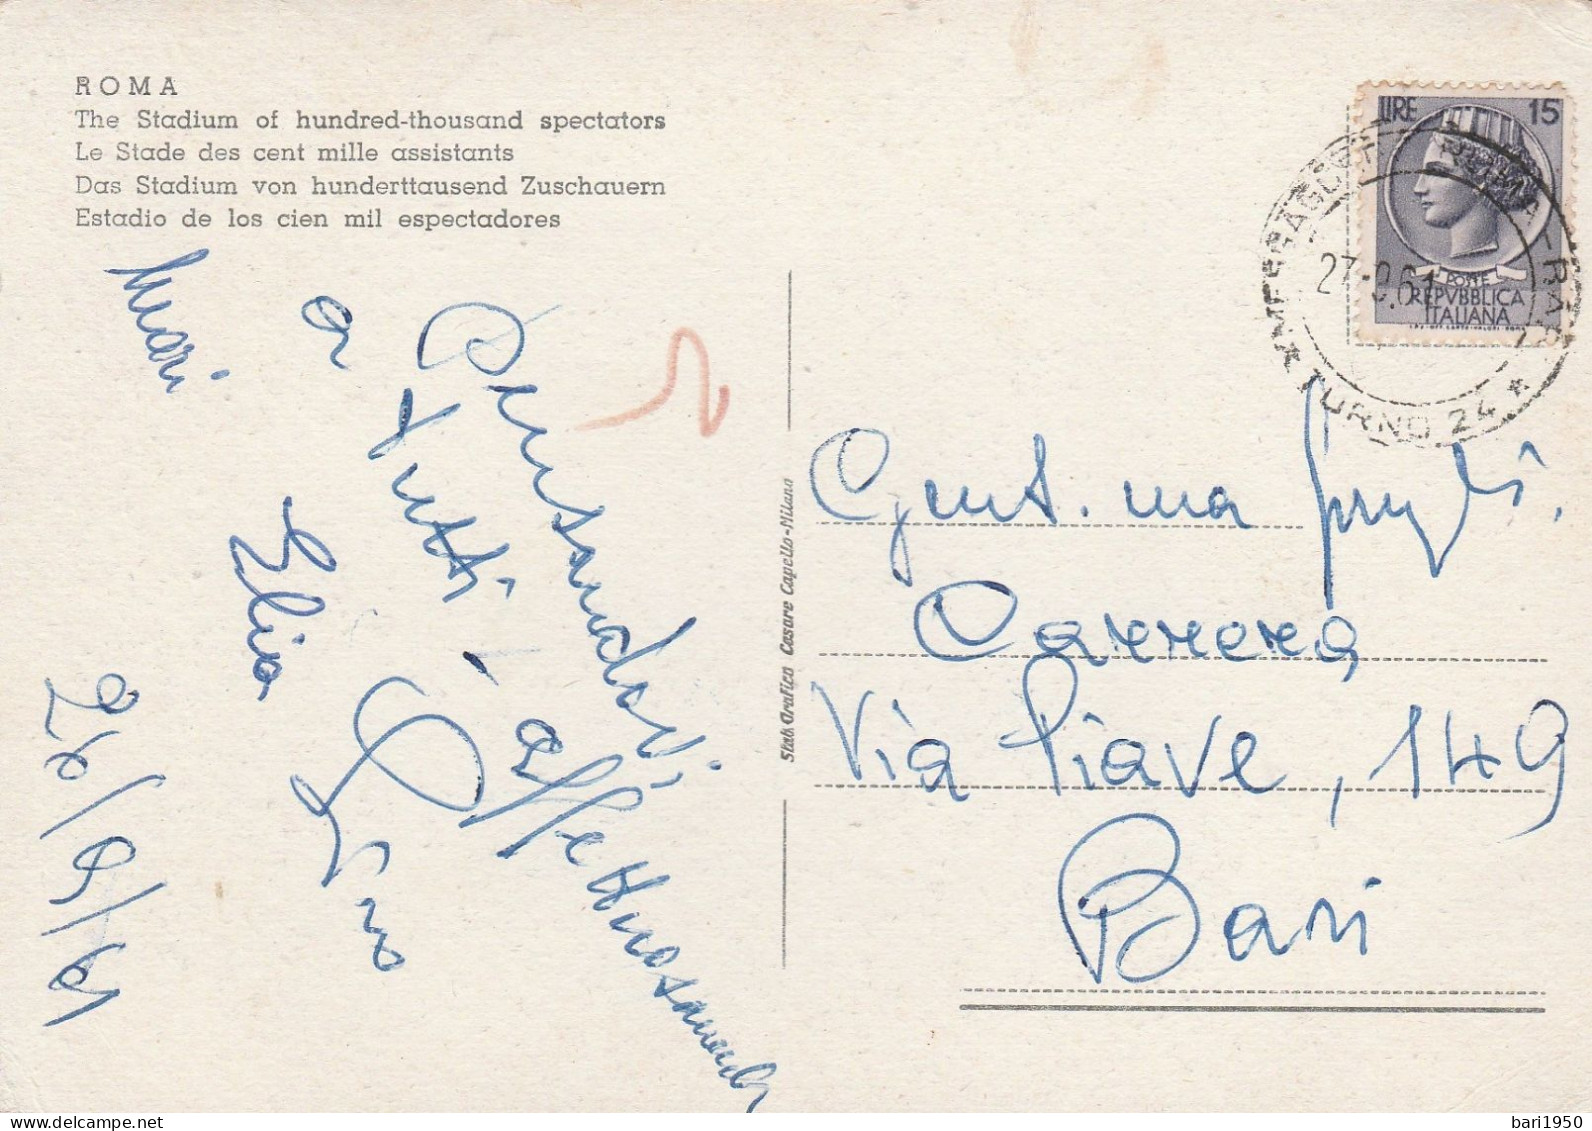 ROMA
The Stadium of hundred-thousand spectators
Le Stade des cent mille assistants
Das Stadium von hunderttausend Zuschauern
Estadio de los cien mil espectadores
Pensandovi
a tutti - affettuosamente
Elio
26/9/61
Stab. Grafico Cesare Capello-Milano
LIRE 15
POSTE
REPVBBLICA
ITALIANA
27.9.61
TURNO 24 *
Gent.ma
Carrera
Via Piave, 149
Bari
bari1950